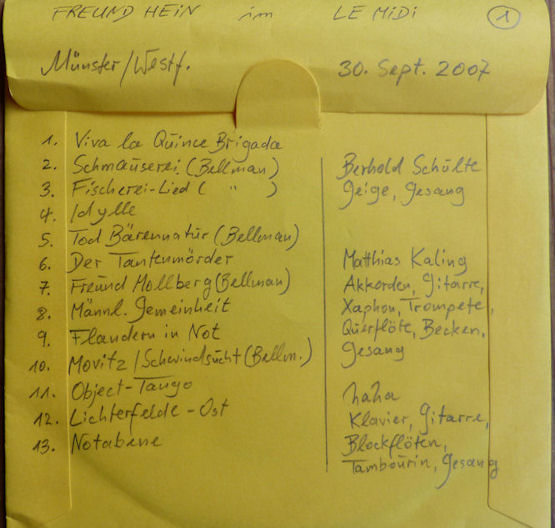 FREUND HEiN im LE MiDi 1
Münster/Westf. 30. Sept. 2007
1. Viva la Quince Brigada
2. Schmauserei (Bellman)
3. Fischerei-Lied ( " )
4. Idylle
5. Tod Bärennatur (Bellman)
6. Der Tantenmörder
7. Freund Mollberg (Bellman)
8. Männl. Gemeinheit
9. Flandern in Not
10. Movitz/Schwindsucht (Bellm.)
11. Object-Tango
12. Lichterfelde-Ost
13. Notabene
Berhold Schulte
Geige, Gesang
Matthias Kaling
Akkordeon, Gitarre,
Xaphon, Trompete,
Querflöte, Becken,
Gesang
haha
Klavier, Gitarre,
Blockflöten,
Tambourin, Gesang